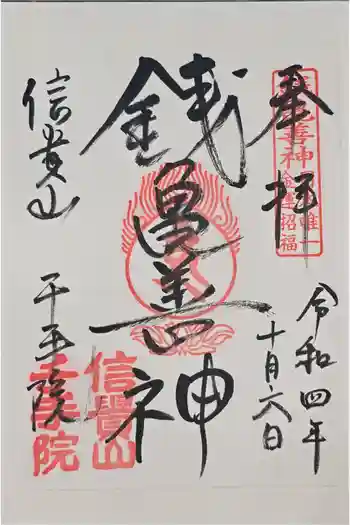 奉拝
令和四年
十月六日
銭亀善神
信貴山
千手院
銭亀善神
唯一
金運招福
信貴山
千手院